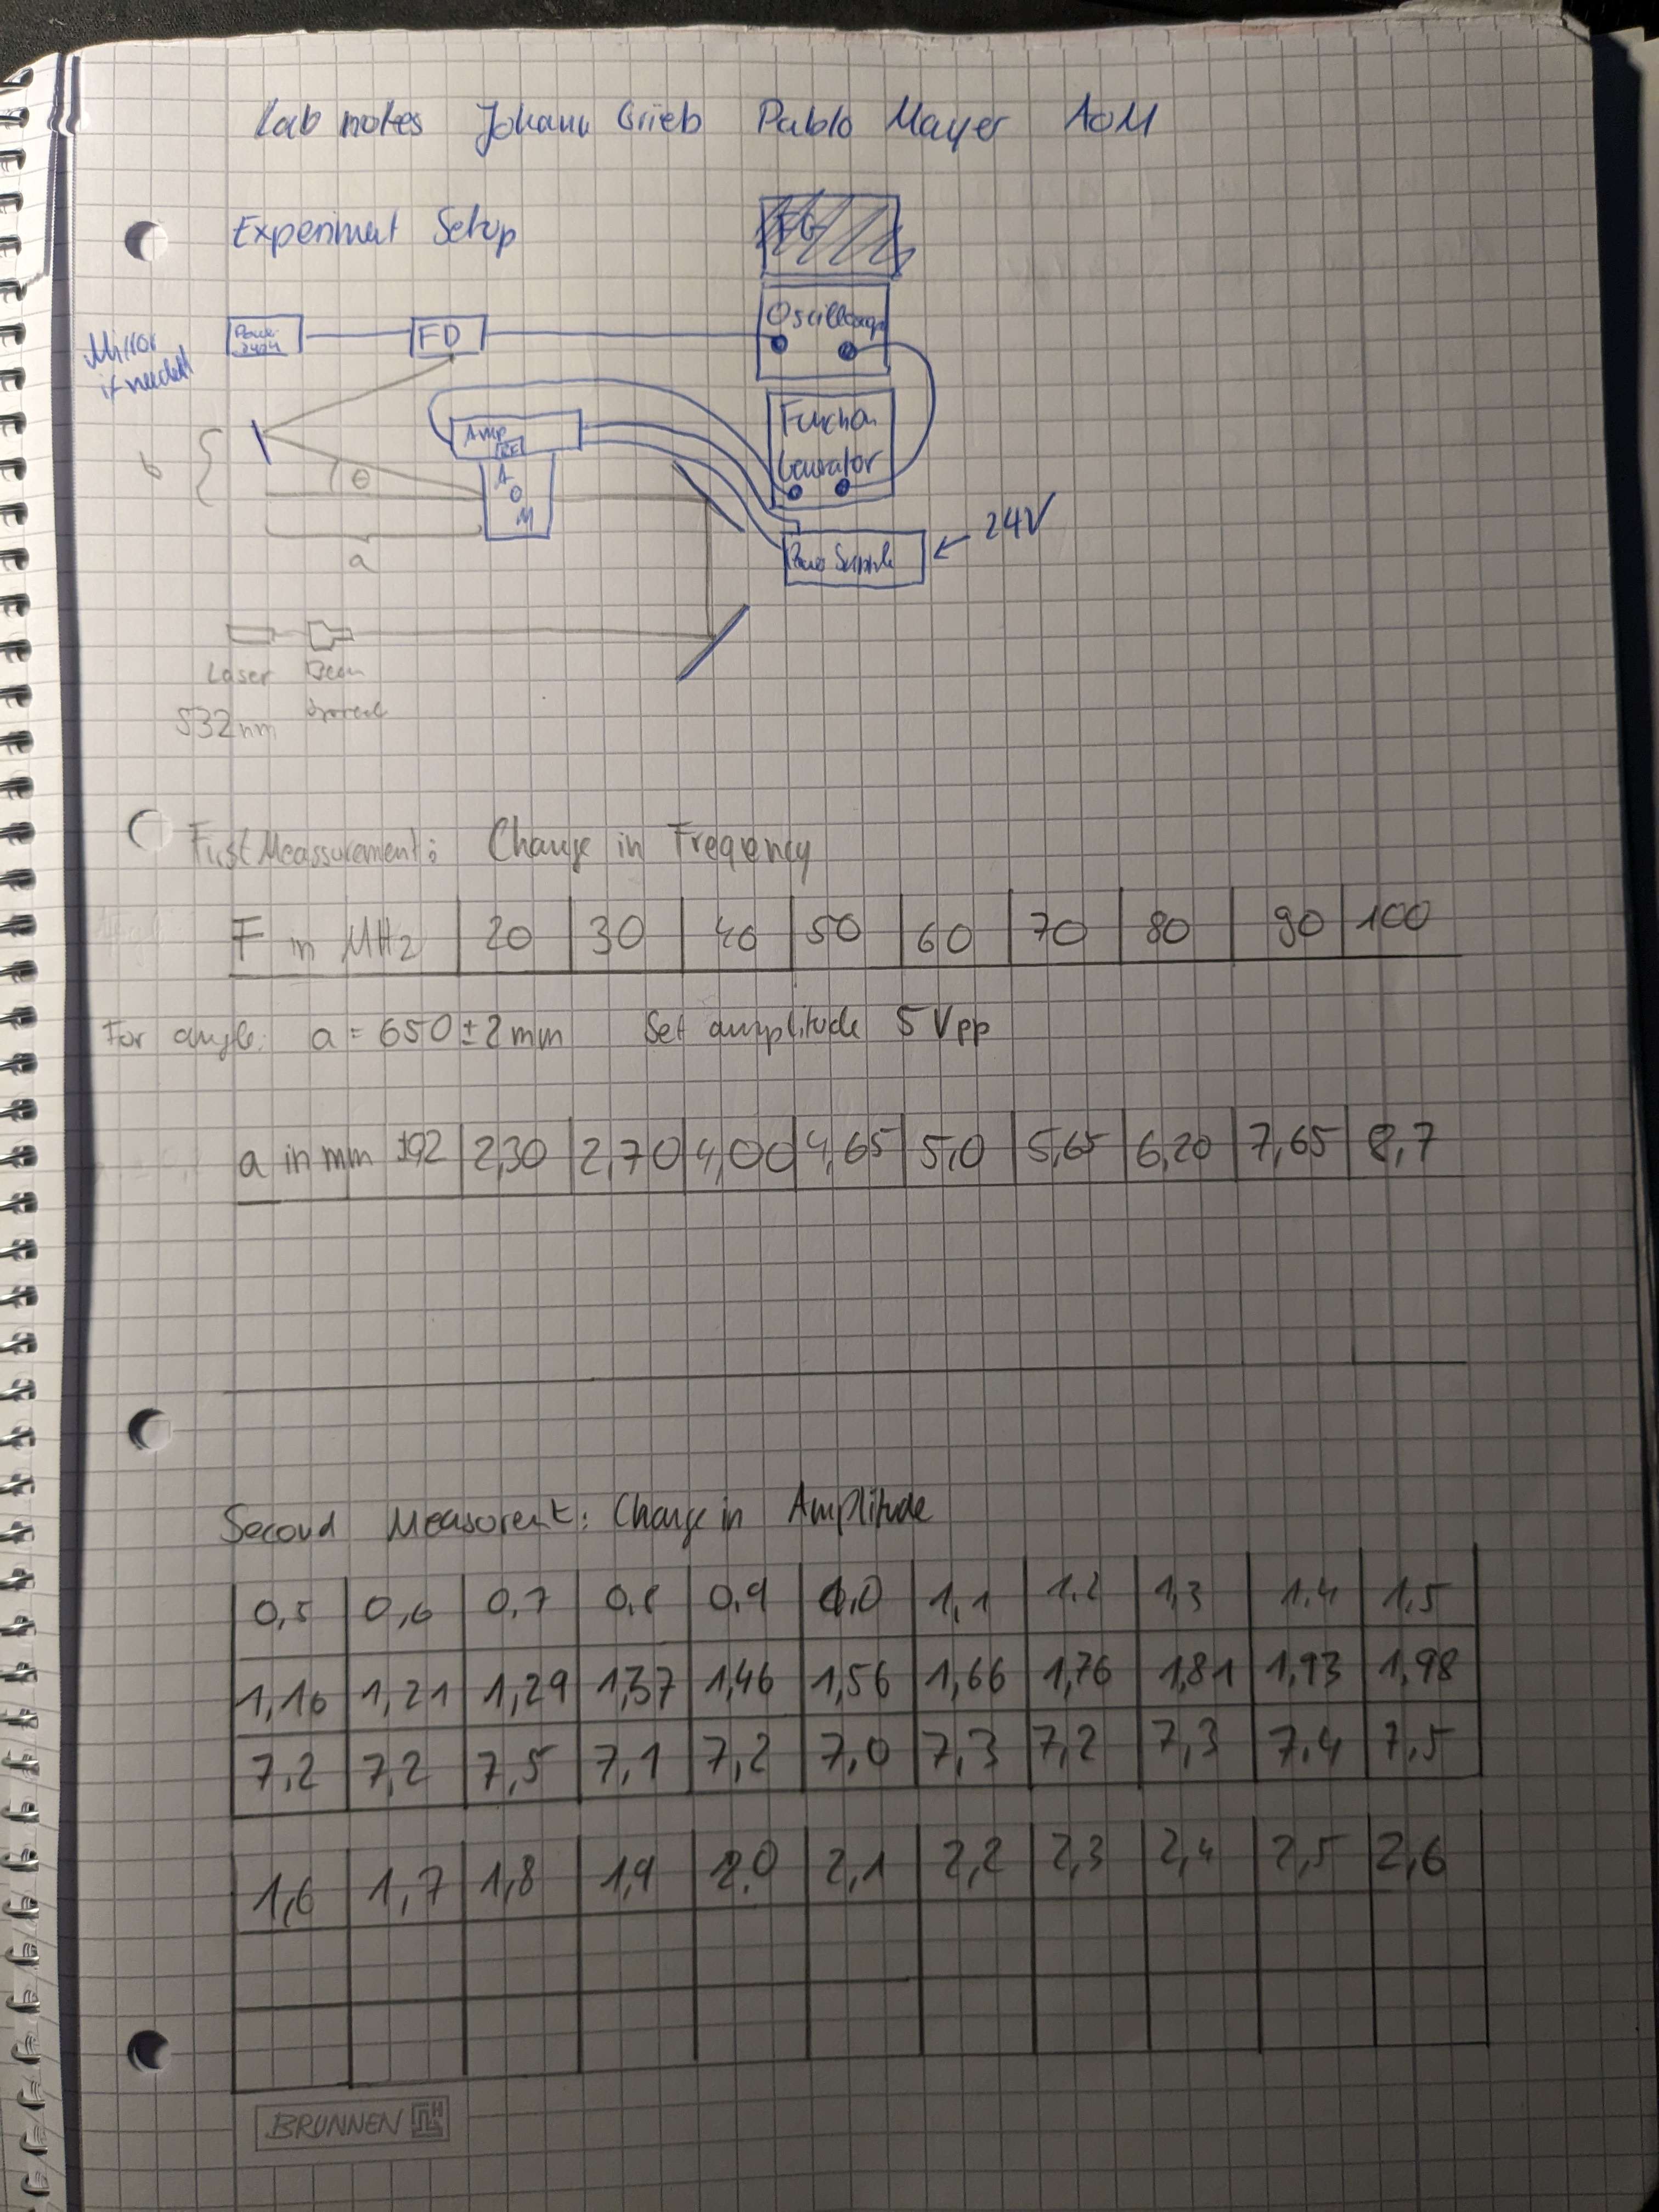 Lab notes Johann Grieb Pablo Mayer AOM
Experiment Setup
Oscilloscope
FD
Mirror
if needed
Amp
RF
Function
Generator
b
θ
A
O
M
24V
a
Power Supply
Laser Beam
532nm
First Meassurement: Change in Freqency
F in MHz 20 30 40 50 60 70 80 90 100
For angle: a = 650 ± 2 mm Set amplitude 5 Vpp
a in mm ±0,2 2,30 2,70 4,00 4,65 5,0 5,65 6,20 7,65 8,7
Second Measurent: Change in Amplitude
0,5 0,6 0,7 0,8 0,9 1,0 1,1 1,2 1,3 1,4 1,5
1,16 1,21 1,29 1,37 1,46 1,56 1,66 1,76 1,81 1,93 1,98
7,2 7,2 7,5 7,1 7,2 7,0 7,3 7,2 7,3 7,4 7,5
1,6 1,7 1,8 1,9 2,0 2,1 2,2 2,3 2,4 2,5 2,6
BRUNNEN